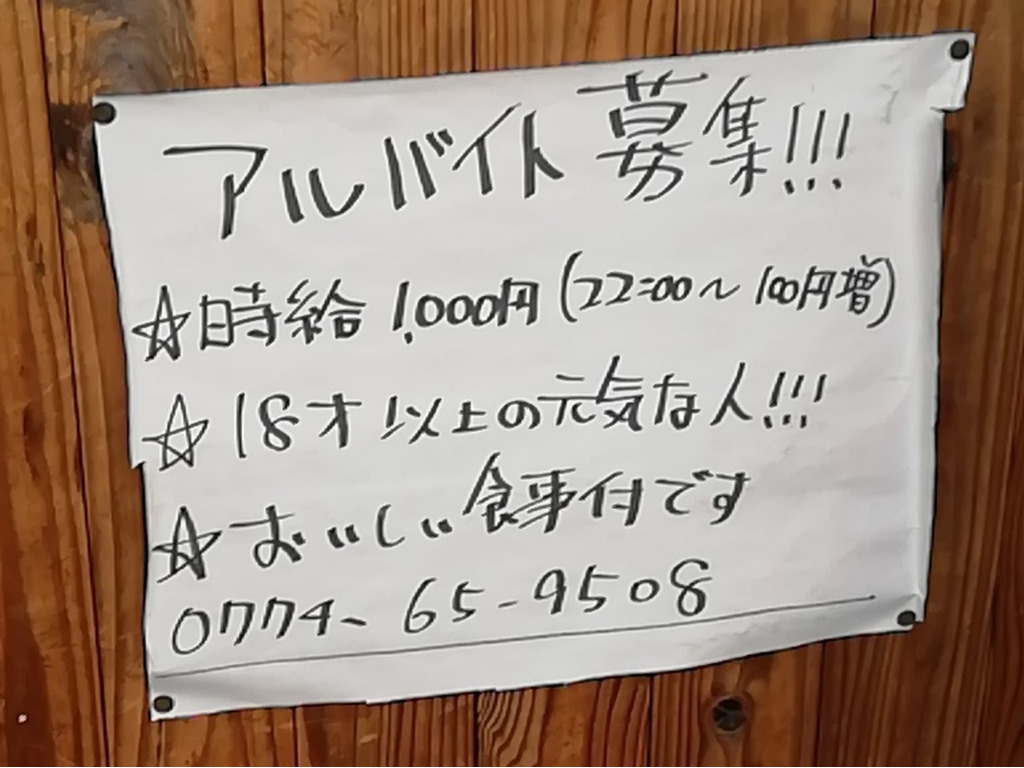 アルバイト募集!!!
☆時給 1,000円(22:00～100円増)
☆18才以上の元気な人!!!
☆おいしい食事付です
0774-65-9508